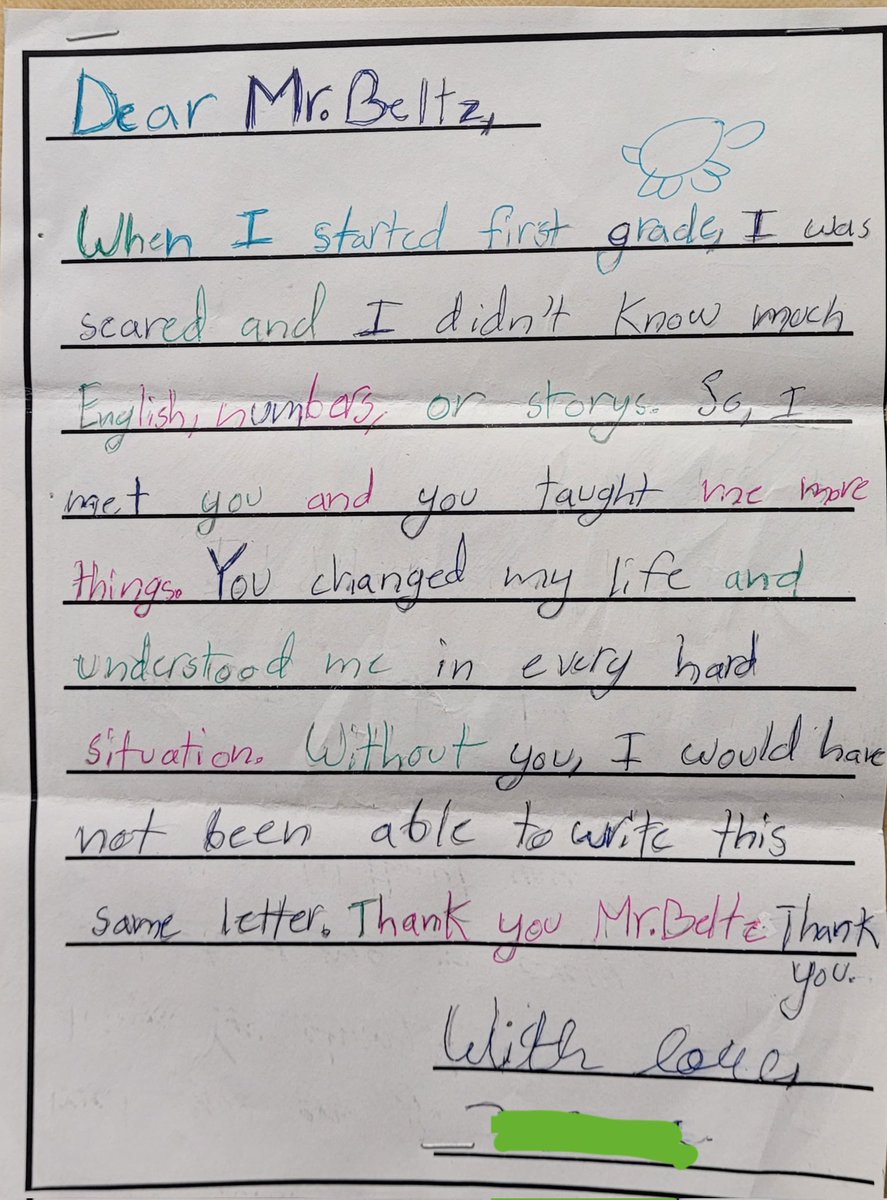 Dear Mr. Beltz,
When I started first grade, I was
scared and I didn't know much
English, numbers, or storys. So, I
met you and you taught me more
things. You changed my life and
understood me in every hard
situation. Without you, I would have
not been able to write this
same letter. Thank you Mr. Beltz Thank
you.
With love,